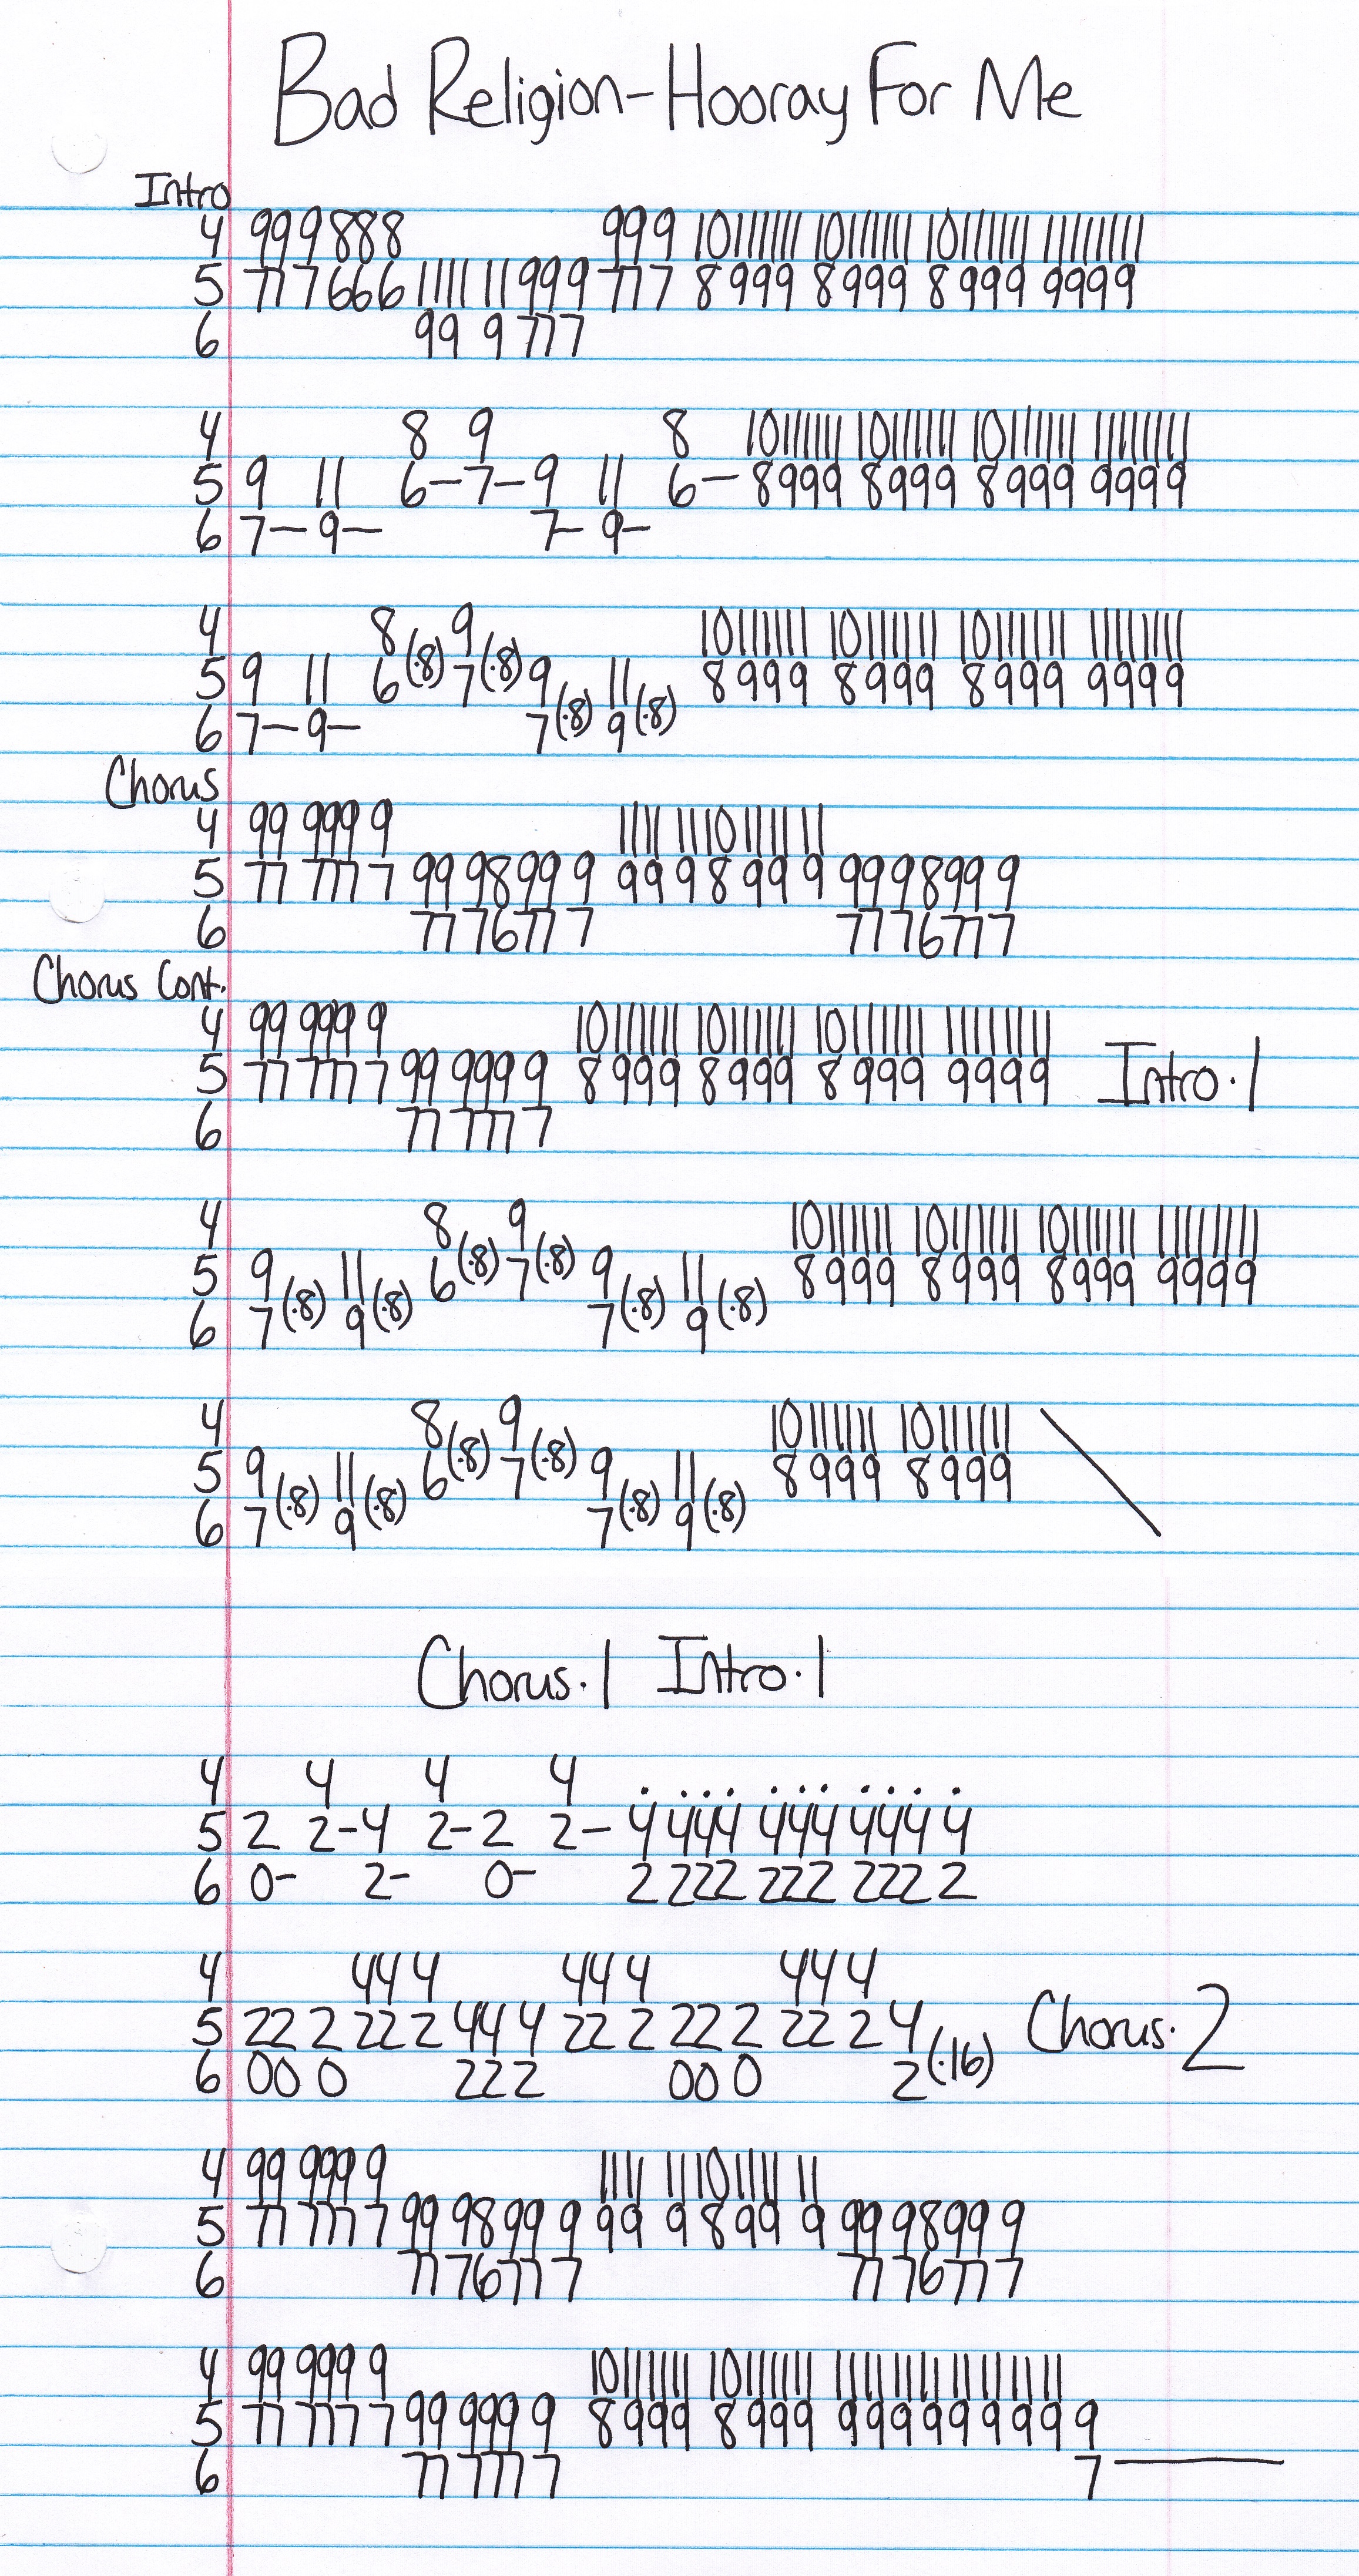 Bad Religion-Hooray For Me
Intro
4 99 9 888 999 10111111 10111111 10111111 11111111
5 77 7 666 1111 11 999 777 8999 8999 8999 9999
6 99 9 777
4 8 9 8 10111111 10111111 10111111 11111111
5 9 11 6-7-9 11 6- 8999 8999 8999 9999
6 7- 9- 7- 9-
4 8 9 10111111 10111111 10111111 11111111
5 9 11 6(.8) 7(.8) 9 11 8999 8999 8999 9999
6 7- 9- 7(.8) 9(.8)
Chorus
4 99 999 9 1111 11101111 11
5 77 777 7 99 9899 9 99 9899 9 99 9899 9
6 77 7677 7 77 7677 7
Chorus Cont.
4 99 999 9 10111111 10111111 10111111 11111111
5 77 777 7 99 999 9 8999 8999 8999 9999 Intro.1
6 77 777 7
4 8 9 10111111 10111111 10111111 11111111
5 9 11 6(.8) 7(.8) 9 11 8999 8999 8999 9999
6 7(.8) 9(.8) 7(.8) 9(.8)
4 8 9 10111111 10111111
5 9 11 6(.8) 7(.8) 9 11 8999 8999
6 7(.8) 9(.8) 7(.8) 9(.8)
Chorus.1 Intro.1
4 4 4 4 . . . . . . . . . . .
5 2 2-4 2-2 2- 4 444 444 444 4
6 0- 2- 0- 2 222 222 222 2
4 44 4 44 4 44 4
5 22 2 22 2 44 4 22 2 22 2 22 2 4 Chorus.2
6 00 0 22 2 00 0 2(.16)
4 99 999 9 1111 11101111 11
5 77 777 7 99 9899 9 99 9 899 9 99 9899 9
6 77 7677 7 77 7677 7
4 99 999 9 10111111 10111111 1111111111111111
5 77 777 7 99 999 9 8999 8999 99999999 9
6 77 777 7 7